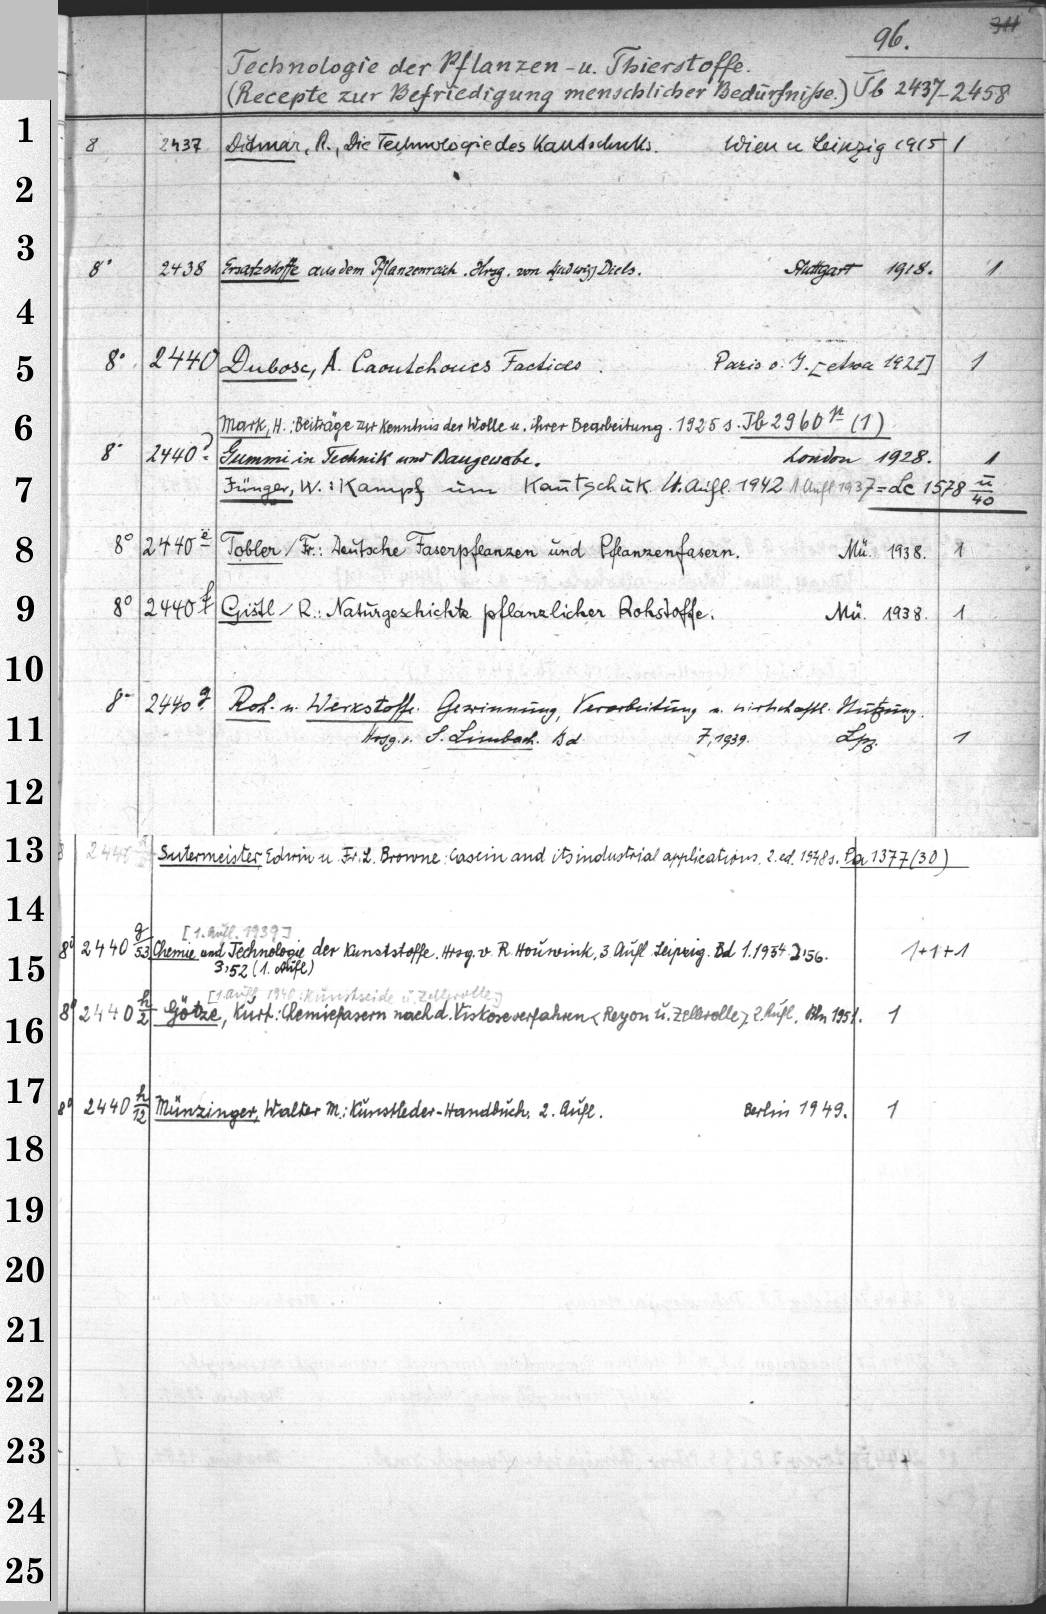 96.
311
Technologie der Pflanzen- u. Thierstoffe.
(Recepte zur Befriedigung menschlicher Bedürfniße.) Tb 2437-2458
1 8 2437 Ditmar, R., Die Technologie des Kautschuks. Wien u Leipzig 1915 1
2
3 8° 2438 Ersatzstoffe aus dem Pflanzenreich. Hrsg. von Ludwig Diels. Stuttgart 1918. 1
4
5 8° 2440 Dubosc, A. Caoutchoucs Factices. Paris o. J. [etwa 1921] 1
6 Mark, H.: Beiträge zur Kenntnis der Wolle u. ihrer Bearbeitung. 1925 s. Tb 2960 (1)
8° 2440 Gummi in Technik und Baugewerbe. London 1928. 1
7 Jünger, W.: Kampf um Kautschuk. 4. Aufl. 1942 1 Aufl 1937 = Lc 1578 u/40
8 8° 2440 e Tobler, Fr.: Deutsche Faserpflanzen und Pflanzenfasern. Mü. 1938. 1
9 8° 2440 f Gistl, R.: Naturgeschichte pflanzlicher Rohstoffe. Mü. 1938. 1
10
8° 2440 g Roh- u. Werkstoffe. Gewinnung, Verarbeitung u. wirtschaftl. Nutzung.
11 Hrsg. v. S. Limbach. Bd 7, 1939. Lpz. 1
12
13 Sutermeister, Edwin u. Fr. L. Browne: Casein and its industrial applications. 2. ed. s. Pa 1377 (30)
14
[1. Aufl. 1939]
8° 2440 g/53 Chemie und Technologie der Kunststoffe. Hrsg. v. R. Houwink, 3 Aufl Leipzig. Bd 1.1954. 2,56. 1+1+1
15 3,52 (1. Aufl)
[1. Aufl 1940: Kunstseide u. Zellwolle]
16 8° 2440 h/2 Götze, Kurt: Chemiefasern nach d. Viskoseverfahren <Reyon u. Zellwolle>. 2. Aufl. Bln 1951. 1
17 8° 2440 h/12 Münzinger, Walter M.: Kunstleder-Handbuch. 2. Aufl. Berlin 1949. 1
18
19
20
21
22
23
24
25